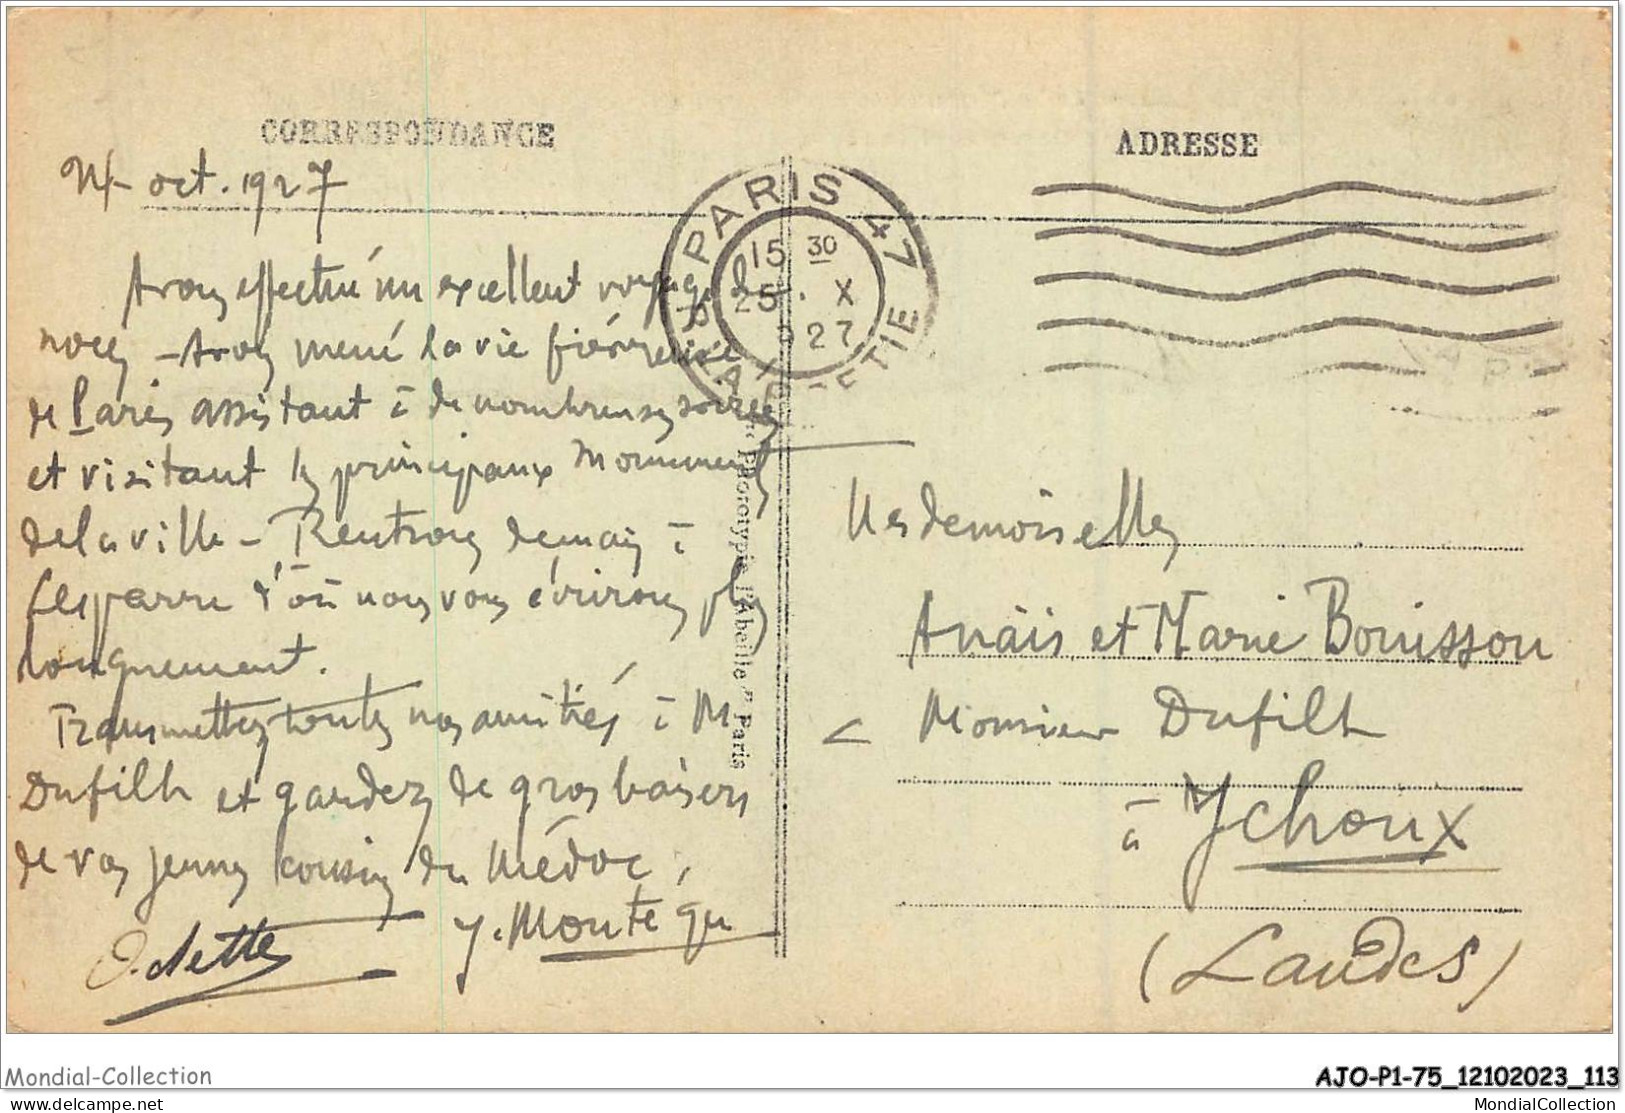 CORRESPONDANCE
24 oct. 1927
Avons effectué un excellent voyage de
noces - Avons mené la vie fiévreuse
de Paris assistant à de nombreuses soirées
et visitant les principaux Monuments
de la ville - Rentrons demain à
Lesparre d'où nous vous écrirons plus
longuement.
Transmettez toutes nos amitiés à M
Dufilh et gardez de gros baisers
de vos jeunes cousins du Médoc,
Odette Y. Montégu
PARIS 47
15 30
25 · X
927
BOETIE
Phototypie "l'Abeille" Paris
ADRESSE
Mesdemoiselles
Anaïs et Marie Bouisson
< Monsieur Dufilh
à Ychoux
(Landes)
Mondial-Collection
AJO-P1-75_12102023_113
delcampe.net
MondialCollection